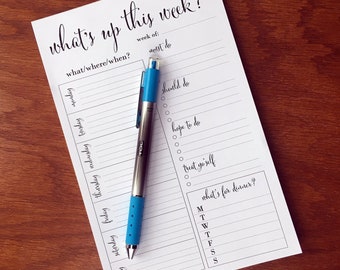 what's up this week?
week of:
what/where/when?
must do
monday
should do
tuesday
hope to do
wednesday
thursday
treat yo'self
friday
what's for dinner?
M
T
W
T
F
S
S
saturday